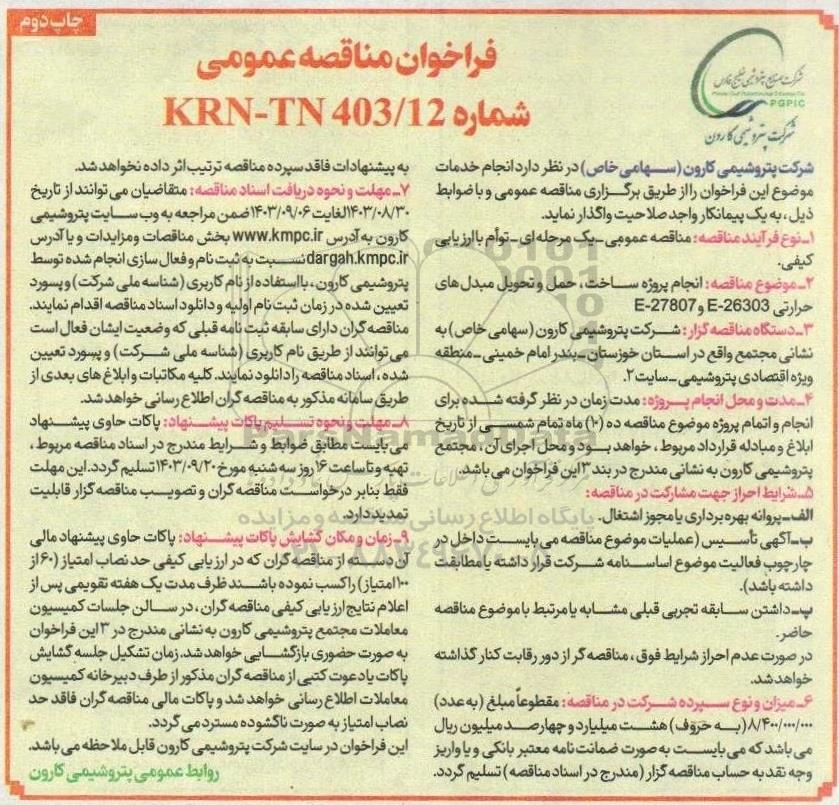 چاپ دوم
فراخوان مناقصه عمومی
شماره KRN-TN 403/12
شرکت صنایع پتروشیمی خلیج فارس
PGPIC
شرکت پتروشیمی کارون
شرکت پتروشیمی کارون (سهامی خاص) در نظر دارد انجام خدمات
موضوع این فراخوان را از طریق برگزاری مناقصه عمومی و با ضوابط
ذیل، به یک پیمانکار واجد صلاحیت واگذار نماید.
۱ـ نوع فرآیند مناقصه: مناقصه عمومی ـ یک مرحله ای ـ توأم با ارزیابی
کیفی.
۲ـ موضوع مناقصه: انجام پروژه ساخت، حمل و تحویل مبدل های
حرارتی E-26303 و E-27807
۳ـ دستگاه مناقصه گزار: شرکت پتروشیمی کارون (سهامی خاص) به
نشانی مجتمع واقع در استان خوزستان ـ بندر امام خمینی ـ منطقه
ویژه اقتصادی پتروشیمی ـ سایت ۲.
۴ـ مدت و محل انجام پروژه: مدت زمان در نظر گرفته شده برای
انجام و اتمام پروژه موضوع مناقصه ده (۱۰) ماه تمام شمسی از تاریخ
ابلاغ و مبادله قرارداد مربوط، خواهد بود و محل اجرای آن، مجتمع
پتروشیمی کارون به نشانی مندرج در بند ۳ این فراخوان می باشد.
۵ـ شرایط احراز جهت مشارکت در مناقصه:
الف ـ پروانه بهره برداری یا مجوز اشتغال.
ب ـ آگهی تأسیس (عملیات موضوع مناقصه می بایست داخل در
چارچوب فعالیت موضوع اساسنامه شرکت قرار داشته یا مطابقت
داشته باشد).
پ ـ داشتن سابقه تجربی قبلی مشابه یا مرتبط با موضوع مناقصه
حاضر.
در صورت عدم احراز شرایط فوق، مناقصه گر از دور رقابت کنار گذاشته
خواهد شد.
۶ـ میزان و نوع سپرده شرکت در مناقصه: مقطوعاً مبلغ (به عدد)
۸/۴۰۰/۰۰۰/۰۰۰ (به حروف) هشت میلیارد و چهارصد میلیون ریال
می باشد که می بایست به صورت ضمانت نامه معتبر بانکی و یا واریز
وجه نقد به حساب مناقصه گزار (مندرج در اسناد مناقصه) تسلیم گردد.
به پیشنهادات فاقد سپرده مناقصه ترتیب اثر داده نخواهد شد.
۷ـ مهلت و نحوه دریافت اسناد مناقصه: متقاضیان می توانند از تاریخ
۱۴۰۳/۰۸/۳۰ لغایت ۱۴۰۳/۰۹/۰۶ ضمن مراجعه به وب سایت پتروشیمی
کارون به آدرس www.kmpc.ir بخش مناقصات و مزایدات و یا آدرس
dargah.kmpc.ir نسبت به ثبت نام و فعال سازی انجام شده توسط
پتروشیمی کارون، با استفاده از نام کاربری (شناسه ملی شرکت) و پسورد
تعیین شده در زمان ثبت نام اولیه و دانلود اسناد مناقصه اقدام نمایند.
مناقصه گران دارای سابقه ثبت نامه قبلی که وضعیت ایشان فعال است
می توانند از طریق نام کاربری (شناسه ملی شرکت) و پسورد تعیین
شده، اسناد مناقصه را دانلود نمایند. کلیه مکاتبات و ابلاغ های بعدی از
طریق سامانه مذکور به مناقصه گران اطلاع رسانی خواهد شد.
۸ـ مهلت و نحوه تسلیم پاکات پیشنهاد: پاکات حاوی پیشنهاد
می بایست مطابق ضوابط و شرایط مندرج در اسناد مناقصه مربوط،
تهیه و تا ساعت ۱۶ روز سه شنبه مورخ ۱۴۰۳/۰۹/۲۰ تسلیم گردد. این مهلت
فقط بنابر درخواست مناقصه گران و تصویب مناقصه گزار قابلیت
تمدید دارد.
۹ـ زمان و مکان گشایش پاکات پیشنهاد: پاکات حاوی پیشنهاد مالی
آن دسته از مناقصه گران که در ارزیابی کیفی حد نصاب امتیاز (۶۰ از
۱۰۰ امتیاز) را کسب نموده باشند ظرف مدت یک هفته تقویمی پس از
اعلام نتایج ارزیابی کیفی مناقصه گران، در سالن جلسات کمیسیون
معاملات مجتمع پتروشیمی کارون به نشانی مندرج در ۳ این فراخوان
به صورت حضوری بازگشایی خواهد شد. زمان تشکیل جلسه گشایش
پاکات با دعوت کتبی از مناقصه گران مذکور از طرف دبیرخانه کمیسیون
معاملات اطلاع رسانی خواهد شد و پاکات مالی مناقصه گران فاقد حد
نصاب امتیاز به صورت ناگشوده مسترد می گردد.
این فراخوان در سایت شرکت پتروشیمی کارون قابل ملاحظه می باشد.
روابط عمومی پتروشیمی کارون